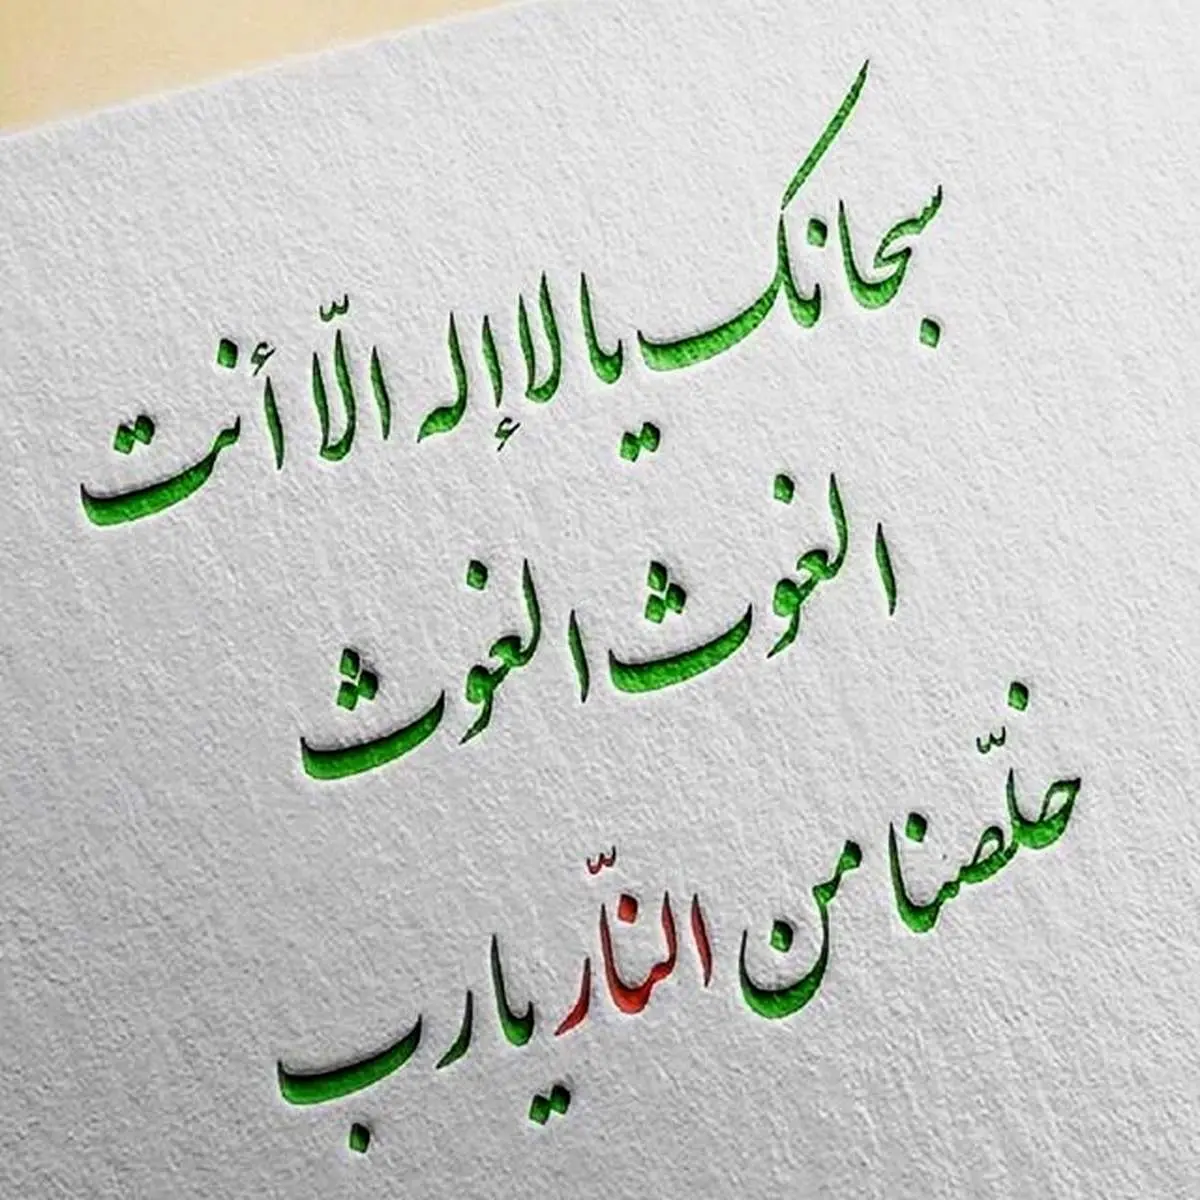 سبحانك يا لا إله الّا أنت
الغوث الغوث
خلّصنا من النّار يا رب